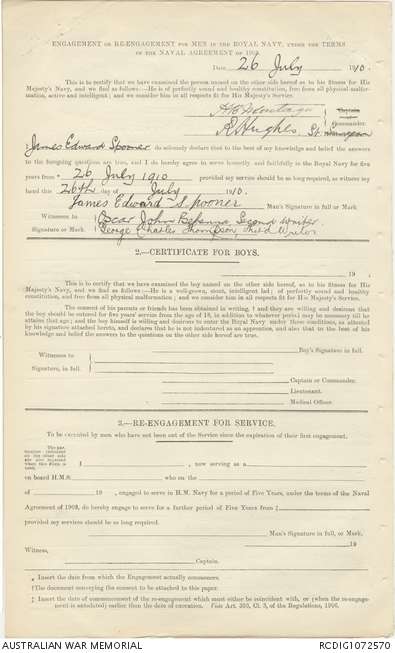 ENGAGEMENT OR RE-ENGAGEMENT FOR MEN IN THE ROYAL NAVY, UNDER THE TERMS
OF THE NAVAL AGREEMENT OF 1903.
Date 26 July 1910.
This is to certify that we have examined the person named on the other side hereof as to his fitness for His
Majesty's Navy, and we find as follows:—He is of perfectly sound and healthy constitution, free from all physical malfor-
mation, active and intelligent; and we consider him in all respects fit for His Majesty's Service.
Captain
Commander.
R Hughes, St Surgeon
I James Edward Spooner do solemnly declare that to the best of my knowledge and belief the answers
to the foregoing questions are true, and I do hereby agree to serve honestly and faithfully in the Royal Navy for five
years from * 26 July 1910 provided my services should be so long required, as witness my
hand this 26th day of July 1910.
James Edward Spooner Man's Signature in full or Mark
Witnesses to Oscar John Second Writer
Signature or Mark. George Charles Thompson Third Writer
2.—CERTIFICATE FOR BOYS.
19 .
This is to certify that we have examined the boy named on the other side hereof, as to his fitness for His
Majesty's Navy, and we find as follows:—He is a well-grown, stout, intelligent lad; of perfectly sound and healthy
constitution, and free from all physical malformation; and we consider him in all respects fit for His Majesty's Service.
The consent of his parents or friends has been obtained in writing, † and they are willing and desirous that
the boy should be entered for five years' service from the age of 18, in addition to whatever period may be necessary till he
attains that age; and the boy himself is willing and desirous to enter the Royal Navy under those conditions, as attested
by his signature attached hereto, and declares that he is not indentured as an apprentice, and also that to the best of his
knowledge and belief the answers to the questions on the other side hereof are true.
Boy's Signature in full.
Witnesses to
Signature, in full.
Captain or Commander.
Lieutenant.
Medical Officer.
3.—RE-ENGAGEMENT FOR SERVICE.
To be executed by men who have not been out of the Service since the expiration of their first engagement.
I , now serving as a
on board H.M.S. who on the
of 19 , engaged to serve in H.M. Navy for a period of Five Years, under the terms of the Naval
Agreement of 1903, do hereby engage to serve for a further period of Five Years from ‡
provided my services should be so long required.
Man's Signature in full, or Mark.
19
Witness,
Captain.
* Insert the date from which the Engagement actually commences.
† The document conveying the consent to be attached to this paper.
‡ Insert the date of commencement of the re-engagement which must either be coincident with, or (when the re-engage-
ment is antedated) earlier then the date of execution. Vide Art. 393, Cl. 3, of the Regulations, 1906.
AUSTRALIAN WAR MEMORIAL
RCDIG1072570